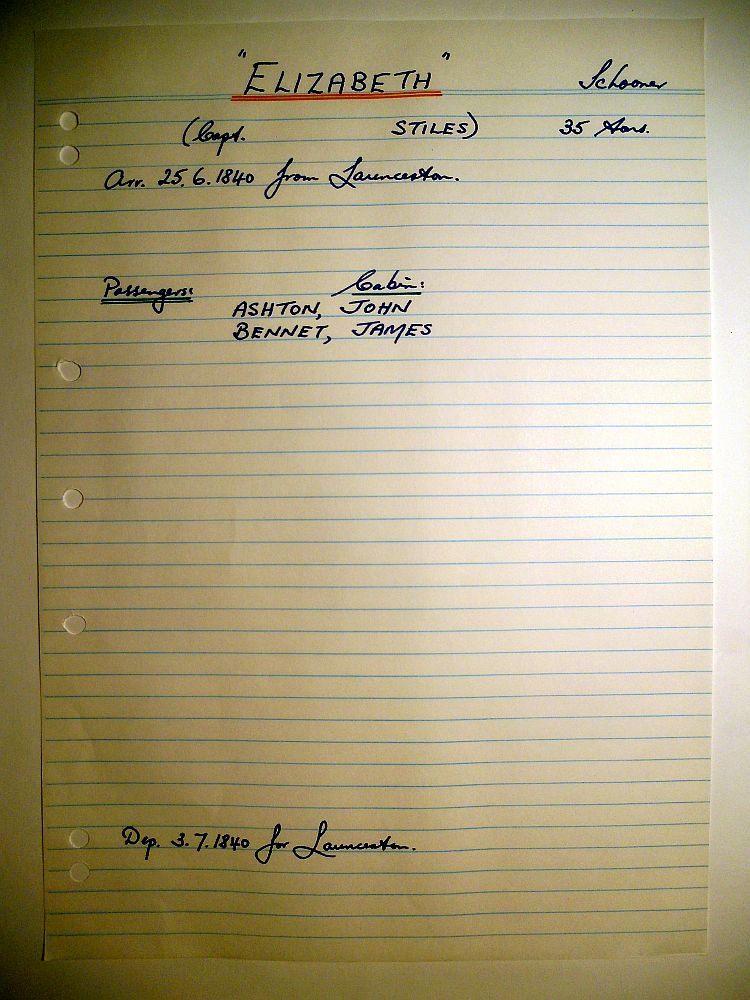 "ELIZABETH" Schooner
(Capt. STILES) 35 tons.
Arr. 25.6.1840 from Launceston.
Passengers: Cabin:
ASHTON, JOHN
BENNET, JAMES
Dep. 3.7.1840 for Launceston.